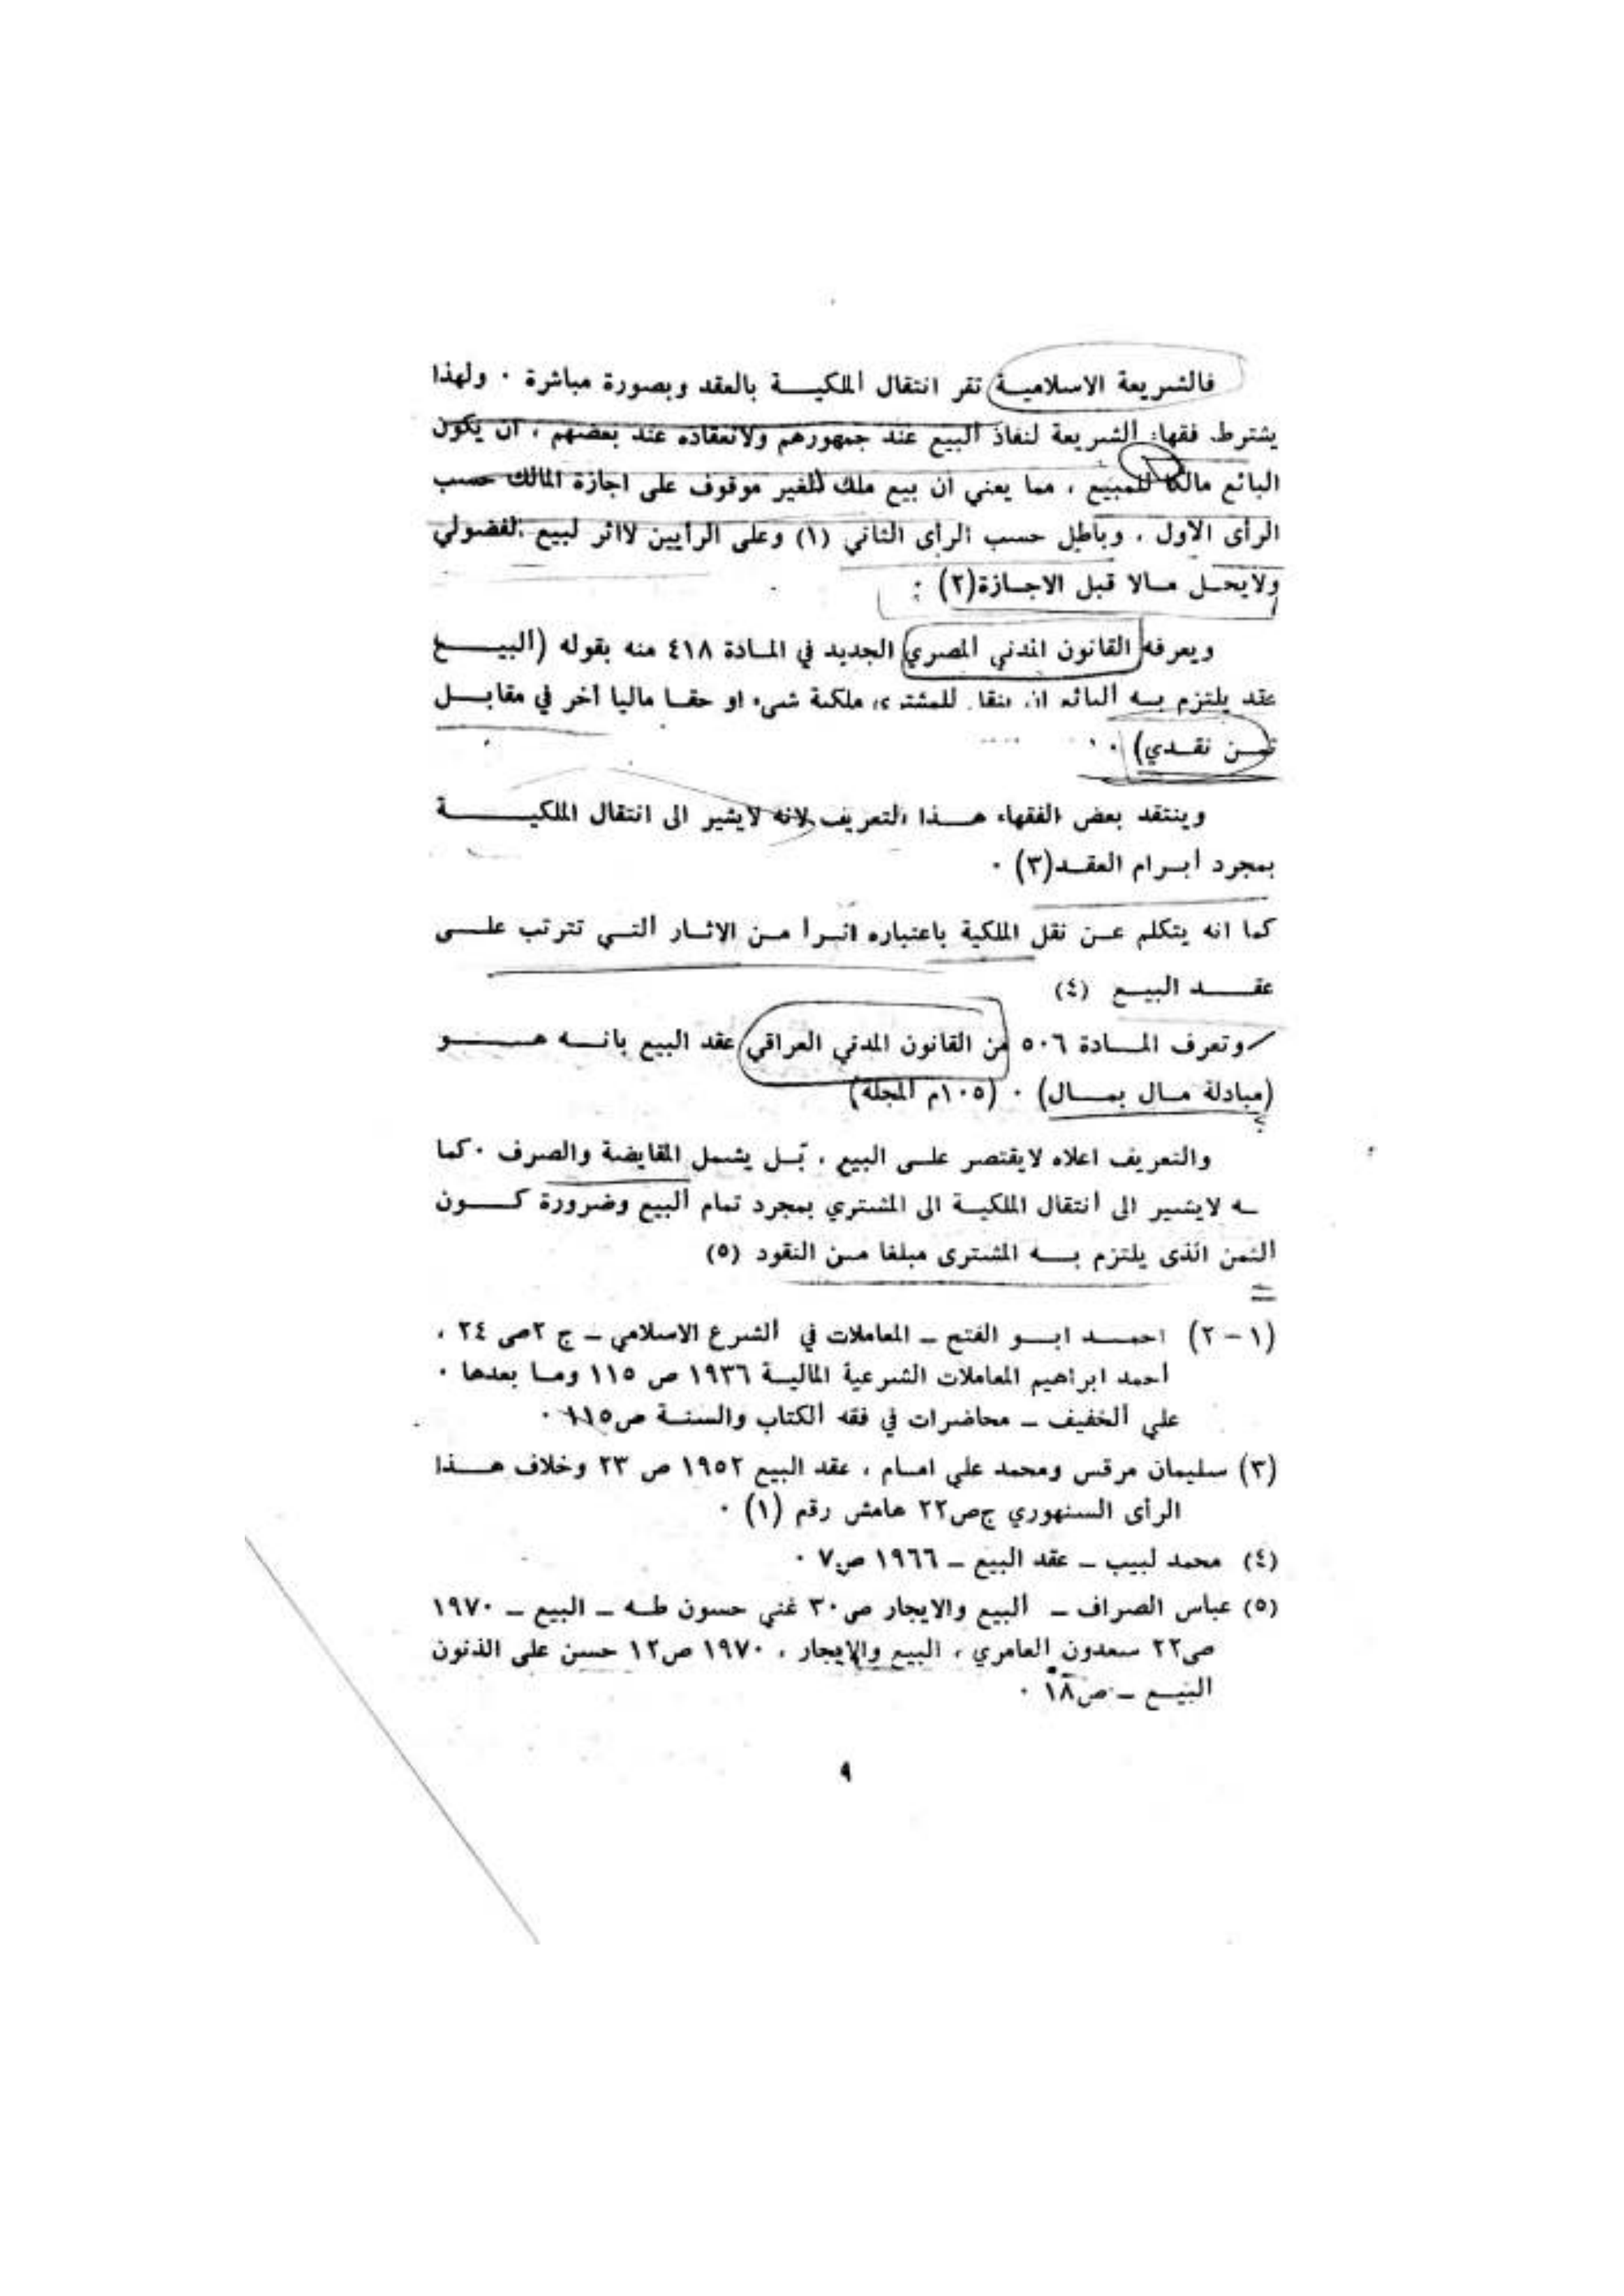 فالشريعة الاسلامية تقر انتقال الملكية بالعقد وبصورة مباشرة ٠ ولهذا
يشترط فقهاء الشريعة لنفاذ البيع عند جمهورهم ولانعقاده عند بعضهم ، ان يكون
البائع مالكا للمبيع ، مما يعني ان بيع ملك الغير موقوف على اجازة المالك حسب
الرأى الاول ، وباطل حسب الرأى الثاني (١) وعلى الرأيين لااثر لبيع الفضولي
ولايحل مالا قبل الاجازة(٢) :
ويعرفه القانون المدني المصري الجديد في المادة ٤١٨ منه بقوله (البيع
عقد يلتزم به البائع ان ينقل للمشترى ملكية شىء او حقا ماليا آخر في مقابل
ثمن نقدي) ٠
وينتقد بعض الفقهاء هذا التعريف لانه لايشير الى انتقال الملكية
بمجرد أبرام العقد(٣) ٠
كما انه يتكلم عن نقل الملكية باعتباره اثرا من الاثار التي تترتب على
عقد البيع (٤)
وتعرف المادة ٥٠٦ من القانون المدني العراقي عقد البيع بانه هو
(مبادلة مال بمال) ٠ (١٠٥م المجلة)
والتعريف اعلاه لايقتصر على البيع ، بل يشمل المقايضة والصرف ٠ كما
ـه لايشير الى أنتقال الملكية الى المشتري بمجرد تمام البيع وضرورة كون
الثمن الذى يلتزم به المشترى مبلغا من النقود (٥)
(١ - ٢) احمد ابو الفتح - المعاملات في الشرع الاسلامي - ج ٢ص ٢٤ ،
أحمد ابراهيم المعاملات الشرعية المالية ١٩٣٦ ص ١١٥ وما بعدها ٠
علي الخفيف - محاضرات في فقه الكتاب والسنة ص١١٥ ٠
(٣) سليمان مرقس ومحمد علي امام ، عقد البيع ١٩٥٢ ص ٢٣ وخلاف هذا
الرأى السنهوري ج ص٢٢ هامش رقم (١) ٠
(٤) محمد لبيب - عقد البيع - ١٩٦٦ ص٧ ٠
(٥) عباس الصراف - البيع والايجار ص٣٠ غني حسون طه - البيع - ١٩٧٠
ص٢٢ سعدون العامري ، البيع والايجار ، ١٩٧٠ ص١٢ حسن على الذنون
البيع - ص١٨ ٠
٩